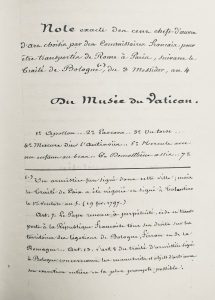 Note exacte des cent chefs-d'œuvre
d'art choisis par des Commissaires français, pour
être transportés de Rome à Paris, suivant le
Traité de Bologne (1), du 5 Messidor, an 4
Du Musée du Vatican.
1° Apollon 2° Laocoon 3° Du torse
4° Mercure dit l'Antinoüs 5° Hercule avec
un enfant au bras 6° assise 7°
(1) Un armistice fut signé dans cette ville; mais
le Traité de Paix a été négocié et signé à Tolentino
le 1er Ventôse an 5. (19 févr. 1797.)
Art. 7. Le Pape renonce à perpétuité, cède et trans-
porte à la République Française tous ses droits sur les
territoires des légations de Bologne, Ferrare et de la
Romagne Art. 13. L'art. 8 du traité d'armistice signé
à Bologne concernant les manuscrits et objets d'art aura
son exécution entière et la plus prompte possible.